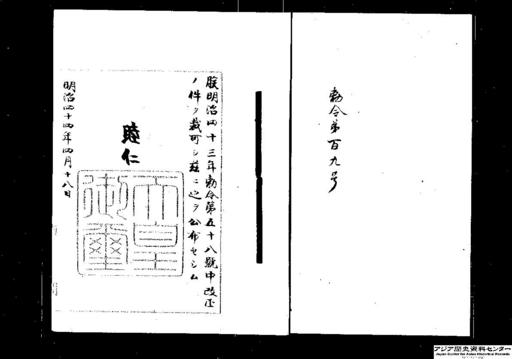 勅令第百九号
朕明治四十三年勅令第五十八號中改正
ノ件ヲ裁可シ茲ニ之ヲ公布セシム
睦仁
天皇御璽
明治四十四年四月十八日
アジア歴史資料センター
Japan Center for Asian Historical Records